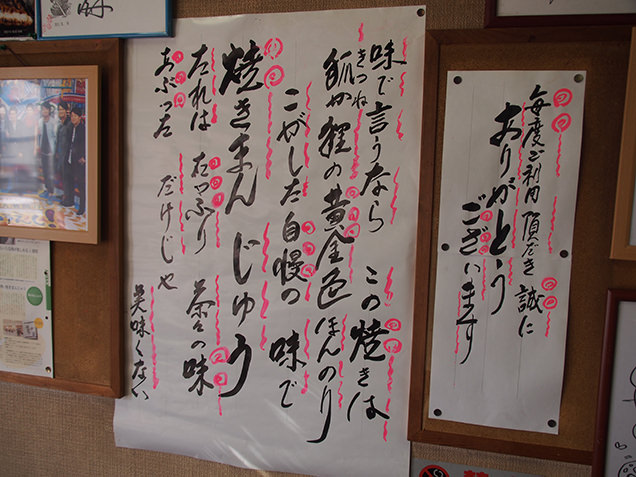 毎度ご利用頂だき誠に
ありがとう
ございます
味で言うなら この焼きは
きつね
狐か狸の黄金色 ほんのり
こがした自慢の 味で
焼きまんじゅう
たれは たっぷり の味
あぶった だけじゃ 美味くない